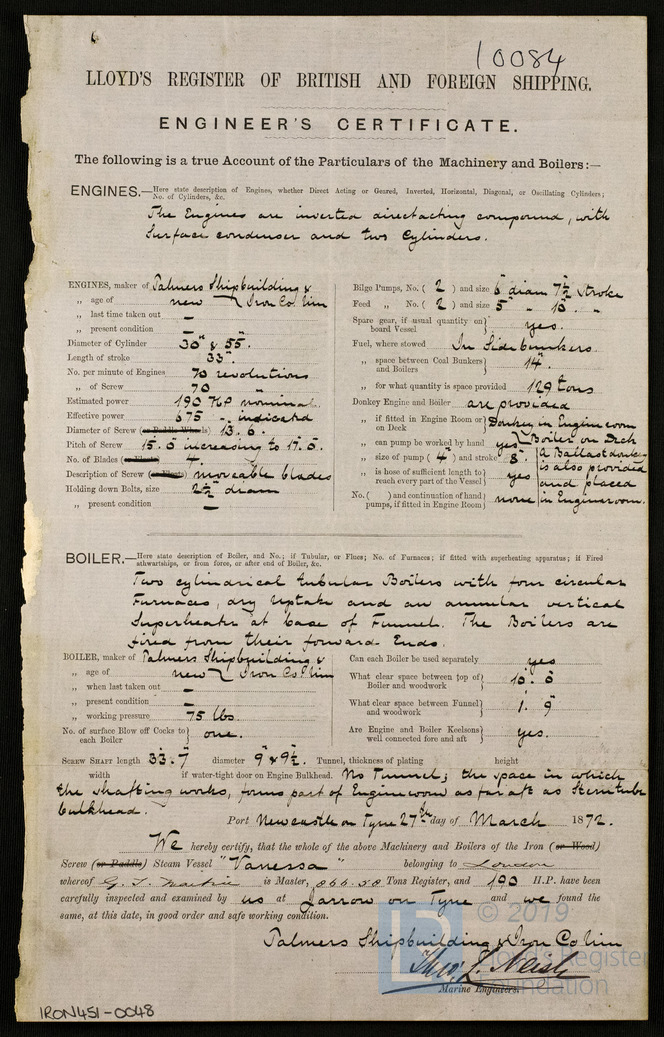 10084
LLOYD'S REGISTER OF BRITISH AND FOREIGN SHIPPING.
ENGINEER'S CERTIFICATE.
The following is a true Account of the Particulars of the Machinery and Boilers:—
ENGINES.—Here state description of Engines, whether Direct Acting or Geared, Inverted, Horizontal, Diagonal, or Oscillating Cylinders;
No. of Cylinders, &c.
The Engines are inverted directacting compound, with
Surface condenser and two Cylinders.
ENGINES, maker of Palmers Shipbuilding &
„ age of new Iron Co lim
„ last time taken out —
„ present condition —
Diameter of Cylinder 30" & 55"
Length of stroke 33"
No. per minute of Engines 70 revolutions
„ of Screw 70
Estimated power 190 HP nominal
Effective power 675 " indicated
Diameter of Screw (or Paddle Wheels) 13. 6.
Pitch of Screw 15. 6 increasing to 17. 6.
No. of Blades (or Floats) 4
Description of Screw (or Floats) moveable blades
Holding down Bolts, size 2½ diam
„ present condition —
Bilge Pumps, No. ( 2 ) and size 6" diam 7½ Stroke
Feed „ No. ( 2 ) and size 5" „
Spare gear, if usual quantity on
board Vessel yes.
Fuel, where stowed In Side bunkers
„ space between Coal Bunkers
and Boilers 14".
„ for what quantity is space provided 129 tons
Donkey Engine and Boiler are provided
„ if fitted in Engine Room or
on Deck Donkey in Engine room
Boiler on Deck
„ can pump be worked by hand yes
„ size of pump ( 4" ) and stroke 8".
„ is hose of sufficient length to
reach every part of the Vessel yes
A Ballast donkey
is also provided
and placed
in Engineroom.
No. ( ) and continuation of hand
pumps, if fitted in Engine Room none
BOILER.—Here state description of Boiler, and No.; if Tubular, or Flues; No. of Furnaces; if fitted with superheating apparatus; if Fired
athwartships, or from force, or after end of Boiler, &c.
Two cylindrical tubular Boilers with four circular
Furnaces, dry Uptake and an annular vertical
Superheater at base of Funnel. The Boilers are
fired from their forward Ends.
BOILER, maker of Palmers Shipbuilding &
„ age of new Iron Co lim
„ when last taken out —
„ present condition —
„ working pressure 75 lbs.
No. of surface Blow off Cocks to
each Boiler one.
Can each Boiler be used separately yes
What clear space between top of
Boiler and woodwork 10. 6
What clear space between Funnel
and woodwork 1. 9"
Are Engine and Boiler Keelsons
well connected fore and aft yes.
SCREW SHAFT length 33. 7 diameter 9" & 9½. Tunnel, thickness of plating height
width if water-tight door on Engine Bulkhead. No Tunnel; the space in which
the shafting works, forms part of Engineroom as far aft as Sterntube
bulkhead.
Port Newcastle on Tyne 27th day of March 1872.
We hereby certify, that the whole of the above Machinery and Boilers of the Iron (or Wood)
Screw (or Paddle) Steam Vessel "Vanessa" belonging to London
whereof G. S. is Master, 866.58 Tons Register, and 190 H.P. have been
carefully inspected and examined by us at Jarrow on Tyne and we found the
same, at this date, in good order and safe working condition.
Palmers Shipbuilding & Iron Co lim
Marine Engineers.
© 2019
Lloyd's Register
Foundation
IRON451-0048